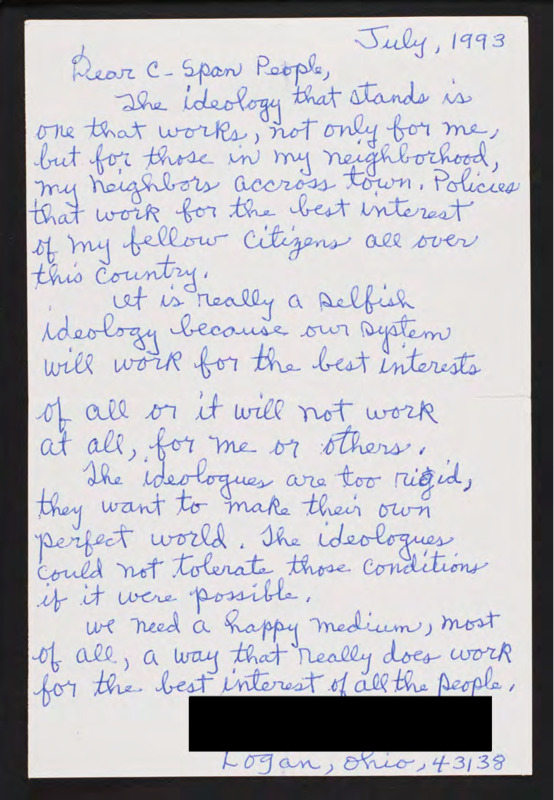 July, 1993
Dear C-Span People,
The ideology that stands is
one that works, not only for me,
but for those in my neighborhood,
my neighbors accross town. Policies
that work for the best interest
of my fellow citizens all over
this country.
It is really a selfish
ideology because our system
will work for the best interests
of all or it will not work
at all, for me or others.
The ideologues are too rigid,
they want to make their own
perfect world. The ideologues
could not tolerate those conditions
if it were possible.
we need a happy medium, most
of all, a way that really does work
for the best interest of all the people.
Logan, Ohio, 43138